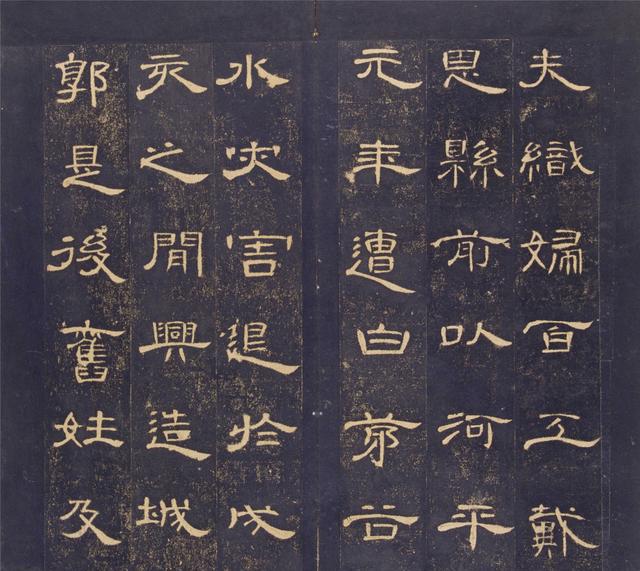 夫織婦百工戴
恩縣前以河平
元年遭白茅谷
水灾害退於戌
亥之間興造城
郭是後舊姓及